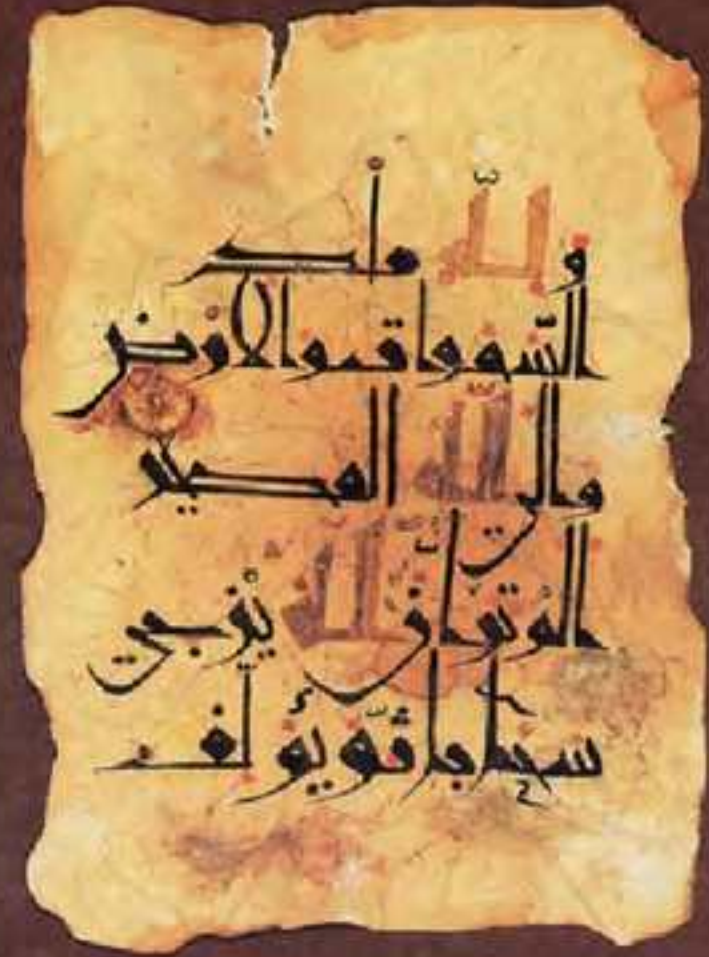 وَلِلّٰهِ مُلْكُ
السَّمٰوَاتِ وَالْاَرْضِ
وَاِلَى اللّٰهِ الْمَصِيْرُ
اَلَمْ تَرَ اَنَّ اللّٰهَ يُزْجِيْ
سَحَابًا ثُمَّ يُؤَلِّفُ